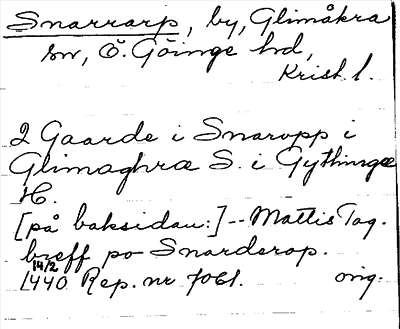 Snararp, by, Glimåkra
sn, Ö. Göinge hd,
Krist. l.
2 Gaarde i Snaropp i
Glimaghræ S. i Gythingæ
H.
[på baksidan:] -- Mattis Tag.
breff po Snarderop.
14/2
1440 Rep. nr 7061. orig.